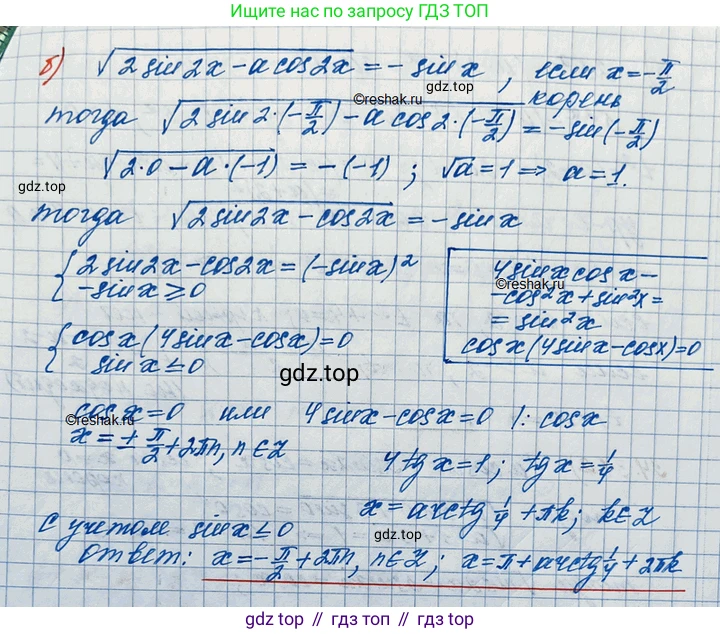 Ищите нас по запросу ГДЗ ТОП
б) √(2sin2x − a cos2x) = − sin x, если x = −π/2
корень
©reshak.ru
тогда √(2sin2·(−π/2) − a cos2·(−π/2)) = −sin(−π/2)
√(2·0 − a·(−1)) = −(−1); √a = 1 => a = 1.
gdz.top
тогда √(2sin2x − cos2x) = −sin x
{ 2sin2x − cos2x = (−sinx)²
−sinx ≥ 0
4sinxcosx −
©reshak.ru
−cos²x + sin²x =
= sin²x
cosx(4sinx−cosx)=0
{ cosx(4sinx−cosx)=0
sinx ≤ 0
gdz.top
cosx = 0 или 4sinx−cosx=0 |: cosx
©reshak.ru
x = ± π/2 + 2πn, n ∈ Z
4tgx = 1; tgx = 1/4
x = arctg 1/4 + πk; k ∈ Z
с учетом sinx ≤ 0
gdz.top
ответ: x = −π/2 + 2πn, n ∈ Z; x = π + arctg 1/4 + 2πk
gdz.top // gdz.top // gdz.top